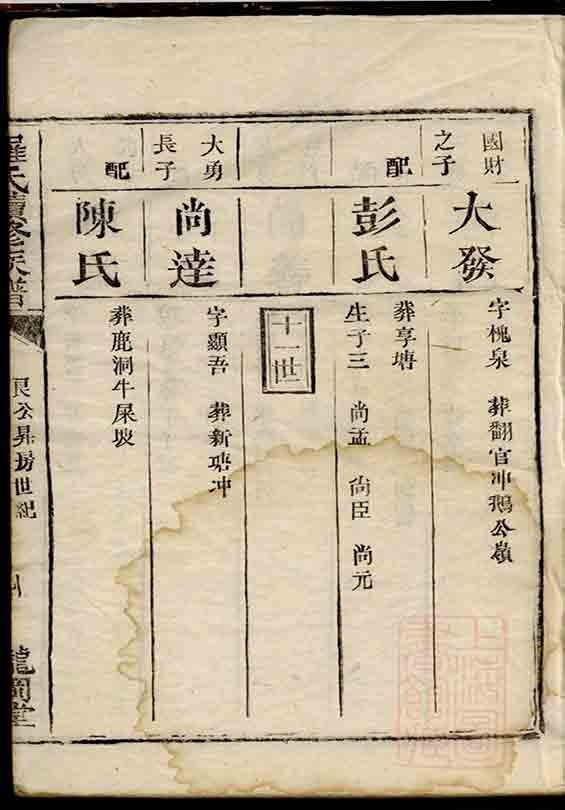 國財
之子
大發
字槐泉 葬翻官冲鵝公嶺
配
彭氏
葬享塘
生子三 尚孟 尙臣 尚元
十一世
大勇
長子
尚達
字顯吾 葬新塘冲
配
陳氏
葬鹿洞牛屎坡
羅氏續修族譜
艮公昇房世紀
龍圖堂
上海圖書館藏